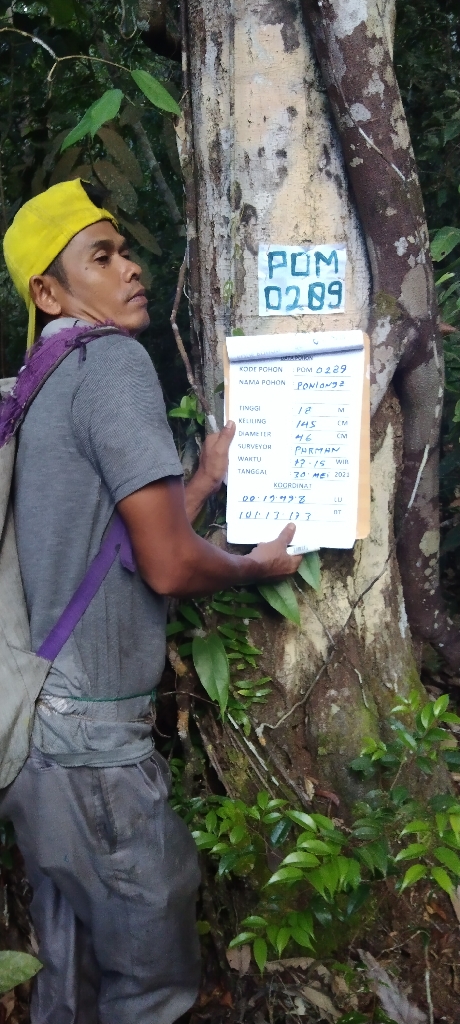 POM
0289
KODE POHON POM 0289
NAMA POHON
TINGGI 18 M
KELILING 145 CM
DIAMETER 46 CM
SURVEYOR PARMAN
WAKTU 13.15 WIB
TANGGAL 30 MEI 2021
KOORDINAT
LU
101.13.173 BT